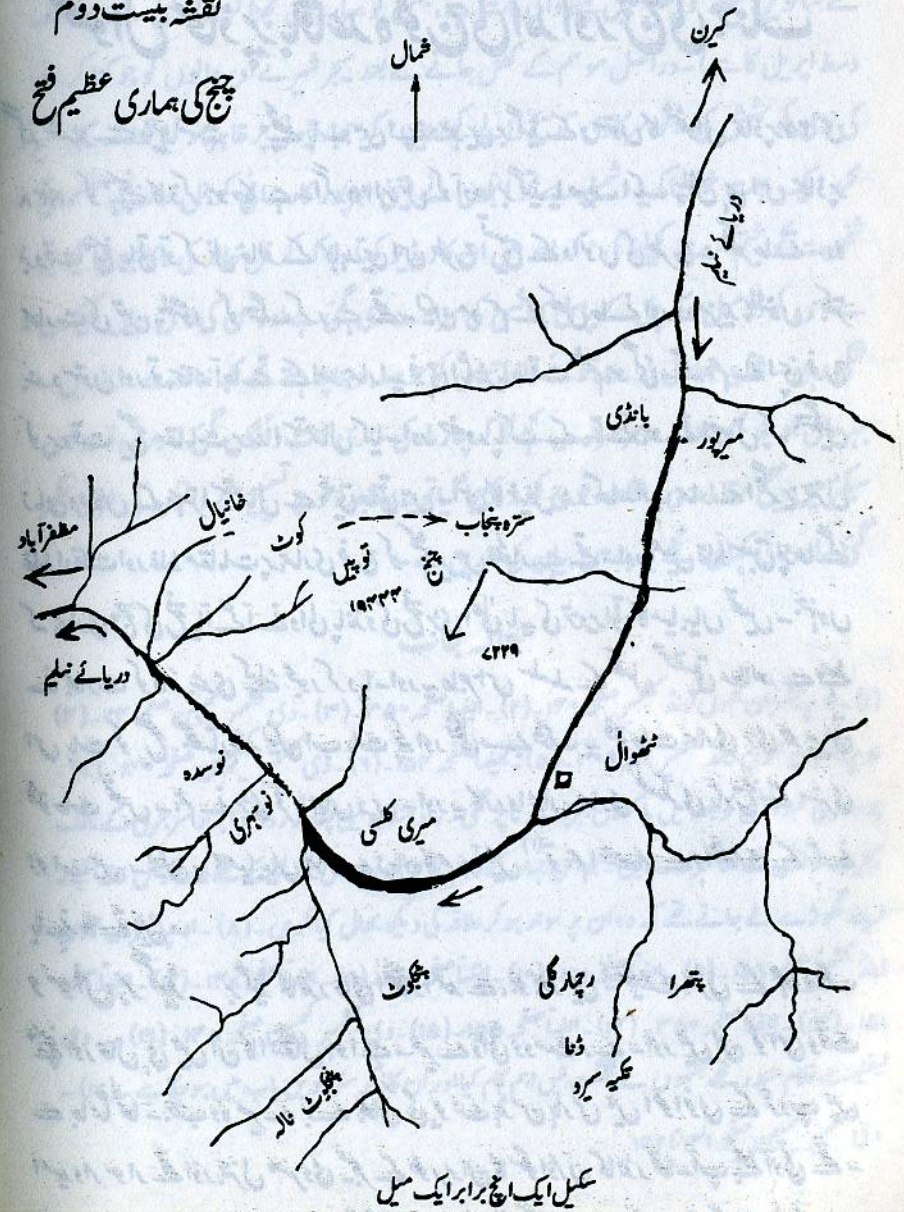 نقشہ بیست دوم
چنج کی ہماری عظیم فتح
شمال
کیرن
دریائے نیلم
بانڈی
میرپور
مظفر آباد
خانیال
کوٹ
سترہ پنجاب
توپیں
چنج
۷۲۲۹
دریائے نیلم
ٹٹھوال
نوسدہ
نوسہری
میری ٹسی
پنجکوٹ
رچمار گلی
پتھرا
ڈنا
تکیہ سیرو
پنجکوٹ نالہ
سکیل ایک انچ برابر ایک میل